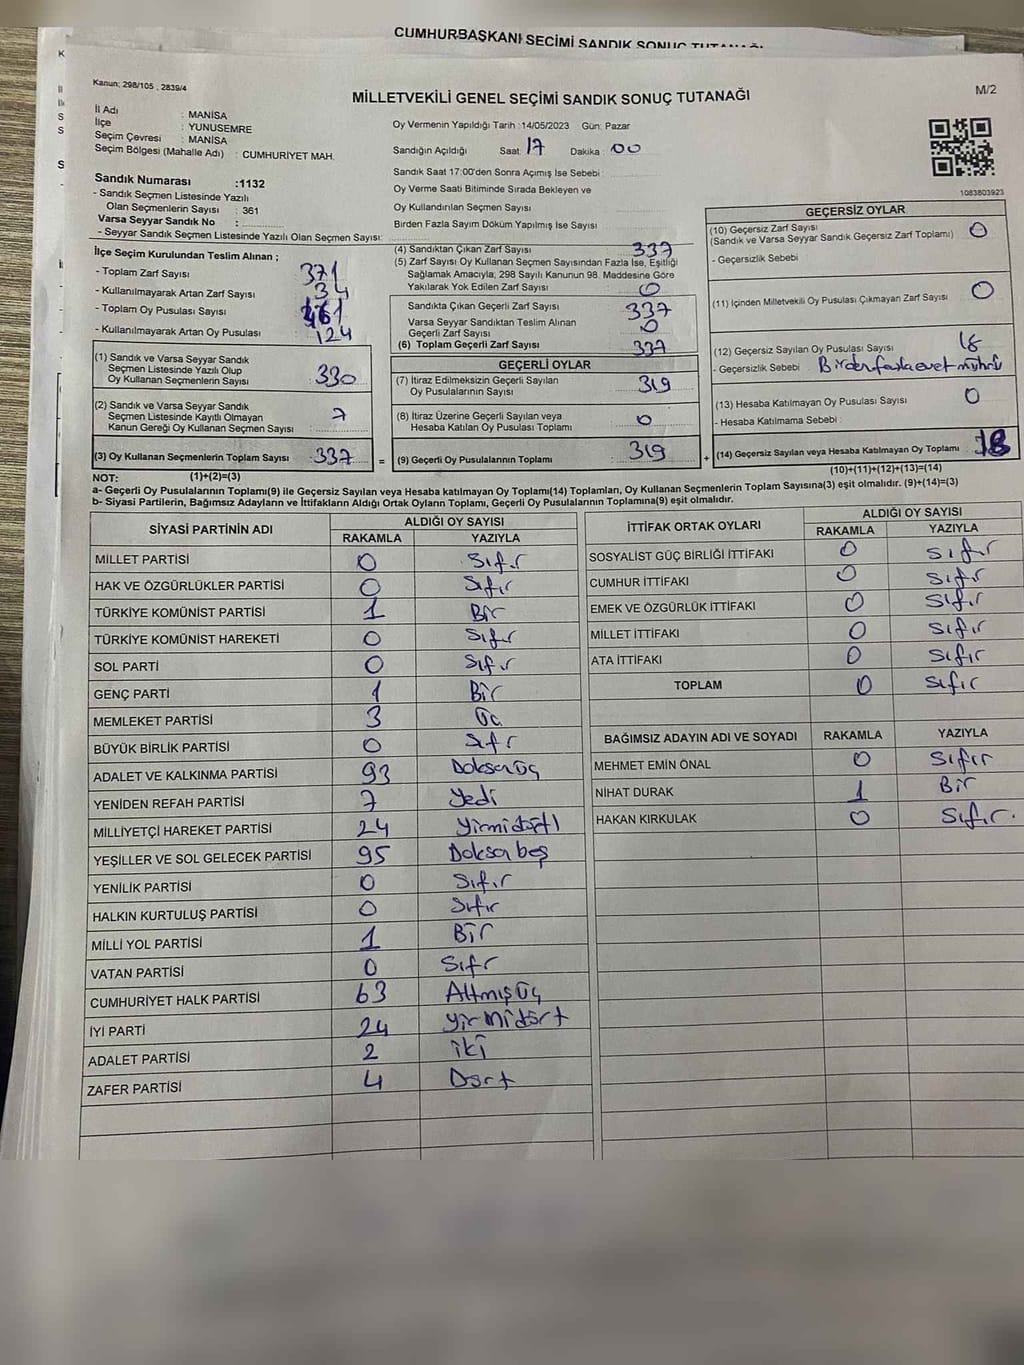 CUMHURBAŞKANI SEÇİMİ SANDIK SONUÇ TUTANAĞI
Kanun: 298/105 , 2839/4
M/2
MİLLETVEKİLİ GENEL SEÇİMİ SANDIK SONUÇ TUTANAĞI
İl Adı : MANİSA
İlçe : YUNUSEMRE
Seçim Çevresi : MANİSA
Seçim Bölgesi (Mahalle Adı) : CUMHURİYET MAH.
Sandık Numarası :1132
- Sandık Seçmen Listesinde Yazılı
Olan Seçmenlerin Sayısı : 361
Varsa Seyyar Sandık No :
- Seyyar Sandık Seçmen Listesinde Yazılı Olan Seçmen Sayısı:
Oy Vermenin Yapıldığı Tarih :14/05/2023 Gün: Pazar
Sandığın Açıldığı Saat 17 Dakika : 00
Sandık Saat 17:00'den Sonra Açımış İse Sebebi :
Oy Verme Saati Bitiminde Sırada Bekleyen ve
Oy Kullandırılan Seçmen Sayısı
Birden Fazla Sayım Döküm Yapılmış İse Sayısı
1083803923
İlçe Seçim Kurulundan Teslim Alınan ;
- Toplam Zarf Sayısı 371
- Kullanılmayarak Artan Zarf Sayısı 34
- Toplam Oy Pusulası Sayısı 461
- Kullanılmayarak Artan Oy Pusulası 124
(1) Sandık ve Varsa Seyyar Sandık
Seçmen Listesinde Yazılı Olup
Oy Kullanan Seçmenlerin Sayısı : 330
(2) Sandık ve Varsa Seyyar Sandık
Seçmen Listesinde Kayıtlı Olmayan
Kanun Gereği Oy Kullanan Seçmen Sayısı : 7
(3) Oy Kullanan Seçmenlerin Toplam Sayısı : 337
(1)+(2)=(3)
(4) Sandıktan Çıkan Zarf Sayısı 337
(5) Zarf Sayısı Oy Kullanan Seçmen Sayısından Fazla İse, Eşitliği
Sağlamak Amacıyla, 298 Sayılı Kanunun 98. Maddesine Göre
Yakılarak Yok Edilen Zarf Sayısı : 0
Sandıkta Çıkan Geçerli Zarf Sayısı 337
Varsa Seyyar Sandıktan Teslim Alınan
Geçerli Zarf Sayısı 0
(6) Toplam Geçerli Zarf Sayısı 337
GEÇERLİ OYLAR
(7) İtiraz Edilmeksizin Geçerli Sayılan
Oy Pusulalarının Sayısı 319
(8) İtiraz Üzerine Geçerli Sayılan veya
Hesaba Katılan Oy Pusulası Toplamı 0
= (9) Geçerli Oy Pusulalarının Toplamı 319 +
GEÇERSİZ OYLAR
(10) Geçersiz Zarf Sayısı : 0
(Sandık ve Varsa Seyyar Sandık Geçersiz Zarf Toplamı)
- Geçersizlik Sebebi
(11) İçinden Milletvekili Oy Pusulası Çıkmayan Zarf Sayısı : 0
(12) Geçersiz Sayılan Oy Pusulası Sayısı : 18
- Geçersizlik Sebebi Birden fazla evet mührü
(13) Hesaba Katılmayan Oy Pusulası Sayısı : 0
- Hesaba Katılmama Sebebi :
(14) Geçersiz Sayılan veya Hesaba Katılmayan Oy Toplamı : 18
(10)+(11)+(12)+(13)=(14)
NOT:
a- Geçerli Oy Pusulalarının Toplamı(9) ile Geçersiz Sayılan veya Hesaba katılmayan Oy Toplamı(14) Toplamları, Oy Kullanan Seçmenlerin Toplam Sayısına(3) eşit olmalıdır. (9)+(14)=(3)
b- Siyasi Partilerin, Bağımsız Adayların ve İttifakların Aldığı Ortak Oyların Toplamı, Geçerli Oy Pusulalarının Toplamına(9) eşit olmalıdır.
SİYASİ PARTİNİN ADI ALDIĞI OY SAYISI
RAKAMLA YAZIYLA
MİLLET PARTİSİ 0 Sıfır
HAK VE ÖZGÜRLÜKLER PARTİSİ 0 Sıfır
TÜRKİYE KOMÜNİST PARTİSİ 1 Bir
TÜRKİYE KOMÜNİST HAREKETİ 0 Sıfır
SOL PARTİ 0 Sıfır
GENÇ PARTİ 1 Bir
MEMLEKET PARTİSİ 3 Üç
BÜYÜK BİRLİK PARTİSİ 0 Sıfır
ADALET VE KALKINMA PARTİSİ 93 Doksanüç
YENİDEN REFAH PARTİSİ 7 Yedi
MİLLİYETÇİ HAREKET PARTİSİ 24 Yirmidört
YEŞİLLER VE SOL GELECEK PARTİSİ 95 Doksan beş
YENİLİK PARTİSİ 0 Sıfır
HALKIN KURTULUŞ PARTİSİ 0 Sıfır
MİLLİ YOL PARTİSİ 1 Bir
VATAN PARTİSİ 0 Sıfr
CUMHURİYET HALK PARTİSİ 63 Altmışüç
İYİ PARTİ 24 Yirmidört
ADALET PARTİSİ 2 iki
ZAFER PARTİSİ 4 Dört
İTTİFAK ORTAK OYLARI ALDIĞI OY SAYISI
RAKAMLA YAZIYLA
SOSYALİST GÜÇ BİRLİĞİ İTTİFAKI 0 Sıfır
CUMHUR İTTİFAKI 0 Sıfır
EMEK VE ÖZGÜRLÜK İTTİFAKI 0 Sıfır
MİLLET İTTİFAKI 0 Sıfır
ATA İTTİFAKI 0 Sıfır
TOPLAM 0 Sıfır
BAĞIMSIZ ADAYIN ADI VE SOYADI RAKAMLA YAZIYLA
MEHMET EMİN ÖNAL 0 Sıfır
NİHAT DURAK 1 Bir
HAKAN KIRKULAK 0 Sıfır.